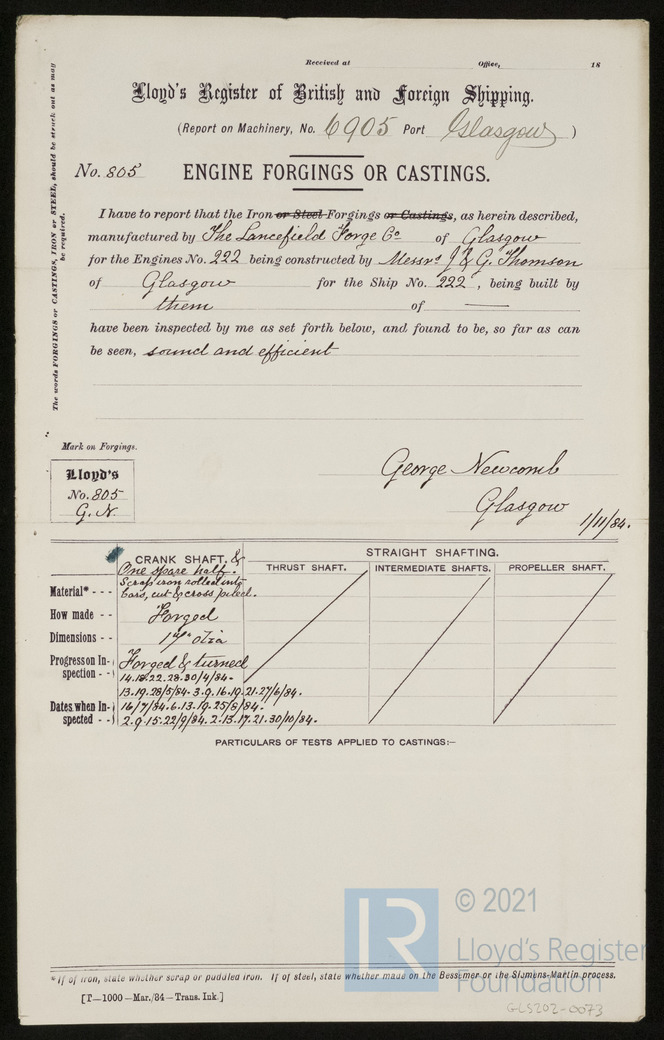 Received at Office, 18
Lloyd's Register of British and Foreign Shipping.
(Report on Machinery, No. 6905 Port Glasgow)
No. 805 ENGINE FORGINGS OR CASTINGS.
The words FORGINGS or CASTINGS, IRON or STEEL, should be struck out as may
be required.
I have to report that the Iron or Steel Forgings or Castings, as herein described,
manufactured by The Lancefield Forge Co of Glasgow
for the Engines No. 222 being constructed by Messrs J & G. Thomson
of Glasgow for the Ship No. 222, being built by
them of —
have been inspected by me as set forth below, and found to be, so far as can
be seen, sound and efficient
Mark on Forgings.
Lloyd's
No. 805
G. N.
George Newcomb
Glasgow
1/11/84.
CRANK SHAFT. &
One spare half.
STRAIGHT SHAFTING.
THRUST SHAFT. INTERMEDIATE SHAFTS. PROPELLER SHAFT.
Material* - - - Scrap iron rolled into
bars, cut & cross piled.
How made - - Forged
Dimensions - - dia
Progress on In-
spection - - Forged & turned
14.18.22.28.30/4/84-
13.19.28/5/84-3.9.16.19.21.27/6/84.
Dates when In-
spected - - 16/7/84.6.13.19.25/8/84.
2.9.15.22/9/84.2.13.17.21.30/10/84.
PARTICULARS OF TESTS APPLIED TO CASTINGS:–
LR
© 2021
Lloyd's Register
Foundation
*If of iron, state whether scrap or puddled iron. If of steel, state whether made on the Bessemer or the Siemens-Martin process.
[T—1000—Mar./84—Trans. Ink.]
GLS202-0073